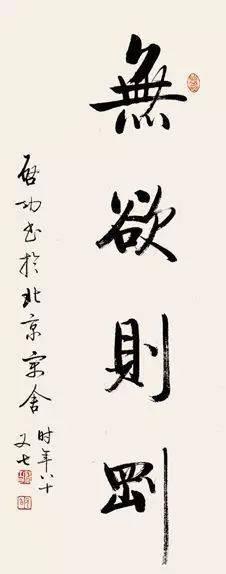 無欲則剛
啟功书於北京寓舍
时年八十
又七